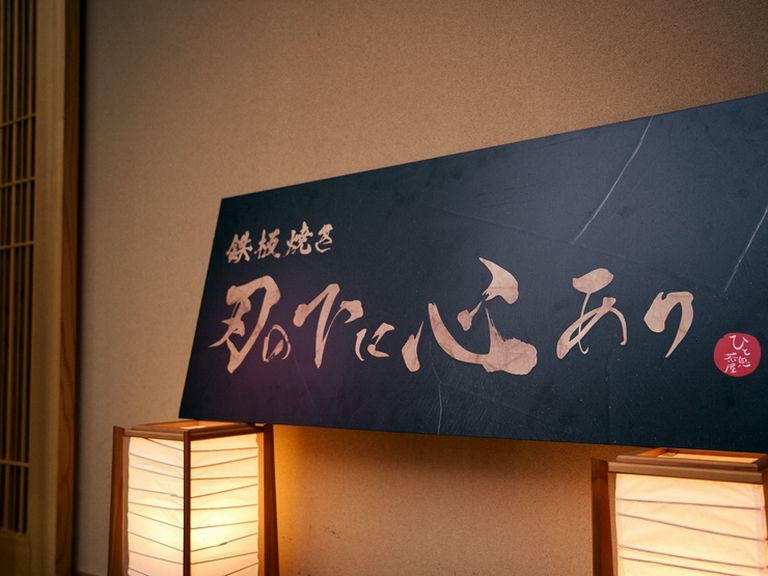 鉄板焼き
刃の下に心あり
ひと忍
茶屋